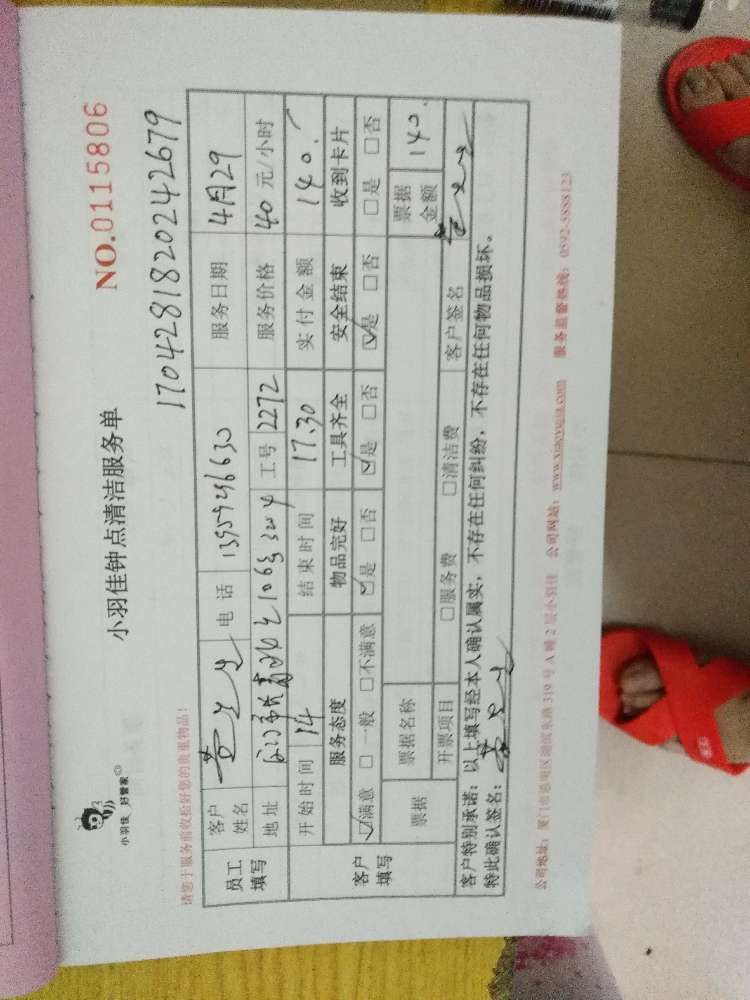 小羽佳 好管家
小羽佳钟点清洁服务单
NO.0115806
1704281820242679
请您于服务前收捡好您的贵重物品!
员工填写
客户姓名 电话 服务日期 4月29
地址 工号 2272 服务价格 40 元/小时
开始时间 14 结束时间 17.30 实付金额 140.
客户填写
服务态度 物品完好 工具齐全 安全结束 收到卡片
☑满意 □一般 □不满意 ☑是 □否 ☑是 □否 ☑是 □否 □是 □否
票据 票据名称 票据金额 140.
开票项目 □服务费 □清洁费 客户签名
客户特别承诺:以上填写经本人确认属实,不存在任何纠纷,不存在任何物品损坏。
特此确认签名:
公司地址:厦门市思明区湖滨东路319号A幢2层小羽佳 公司网站:www.xiaoyujia.com 服务监督热线:0592-5888123